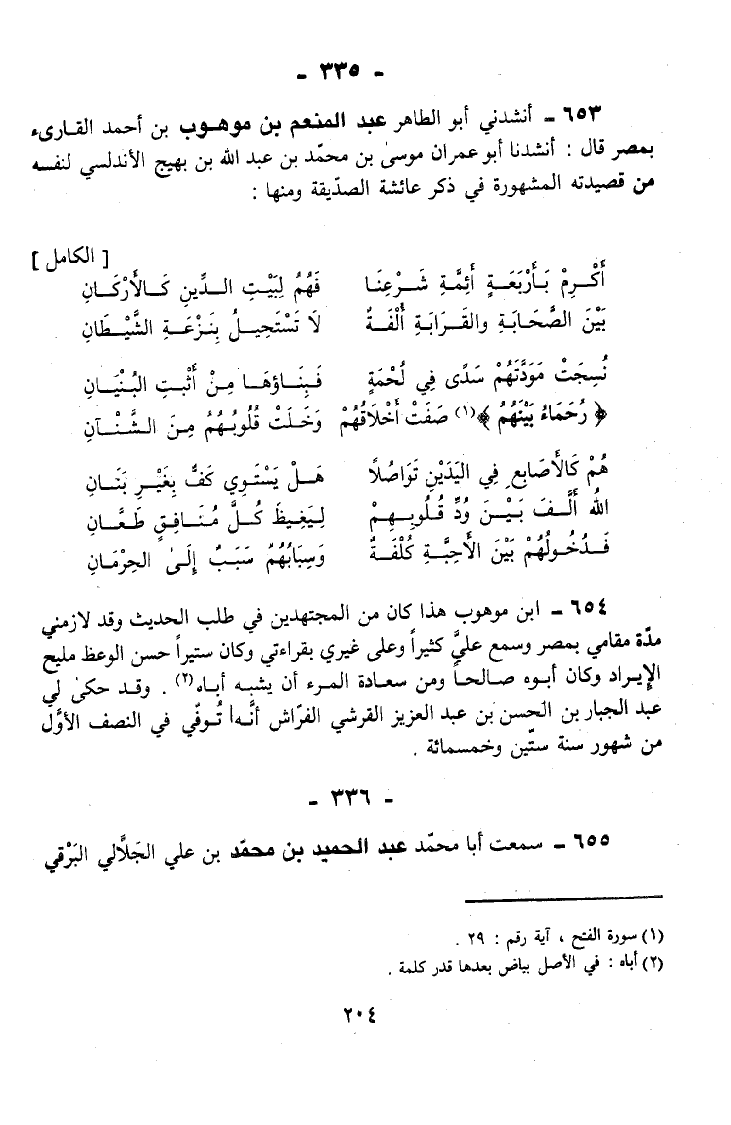 - ٣٣٥ -
٦٥٣ - أنشدني أبو الطاهر عبد المنعم بن موهوب بن أحمد القارىء
بمصر قال : أنشدنا أبو عمران موسىٰ بن محمّد بن عبد الله بن بهيج الأندلسي لنفسه
من قصيدته المشهورة في ذكر عائشة الصدّيقة ومنها :
[ الكامل ]
أَكْرِمْ بَأَرْبَعَةٍ أَئِمَّةِ شَرْعِنَا فَهُمُ لِبَيْتِ الدِّينِ كَالأَرْكَانِ
بَيْنَ الصَّحَابَةِ والقَرَابَةِ أُلْفَةٌ لاَ تَسْتَحِيلُ بِنَزْعَةِ الشَّيْطَانِ
نُسِجَتْ مَوَدَّتَهُمْ سَدًى فِي لُحْمَةٍ فَبِنَاؤهَا مِنْ أَثْبتِ البُنْيَانِ
﴿ رُحَمَاءُ بَيْنَهُمُ ﴾(١) صَفَتْ أَخْلاَقُهُمْ وَخَلَتْ قُلُوبُهُمُ مِنَ الشَّنْآنِ
هُمْ كَالأَصَابعِ فِي اليَدَيْنِ تَوَاصُلاً هَلْ يَسْتَوِي كَفٌّ بِغَيْرِ بَنَانِ
اللهُ أَلَّفَ بَيْنَ وُدِّ قُلُوبِهِمْ لِيَغِيظَ كُلَّ مُنَافِقٍ طَعَّانِ
فَدُخُولُهُمْ بَيْنَ الأَحِبَّةِ كُلْفَةٌ وَسِبَابُهُمْ سَبَبٌ إِلَىٰ الحِرْمَانِ
٦٥٤ - ابن موهوب هذا كان من المجتهدين في طلب الحديث وقد لازمني
مدّة مقامي بمصر وسمع عليَّ كثيراً وعلى غيري بقراءتي وكان ستيراً حسن الوعظ مليح
الإيراد وكان أبوه صالحاً ومن سعادة المرء أن يشبه أباه(٢) . وقد حكىٰ لي
عبد الجبار بن الحسن بن عبد العزيز القرشي الفرّاش أنَّه تُوفّي في النصف الأوَّل
من شهور سنة ستّين وخمسمائة .
- ٣٣٦ -
٦٥٥ - سمعت أبا محمّد عبد الحميد بن محمّد بن علي الجَلَّالي البَرْقي
(١) سورة الفتح ، آية رقم : ٢٩ .
(٢) أباه : في الأصل بياض بعدها قدر كلمة .
٢٠٤